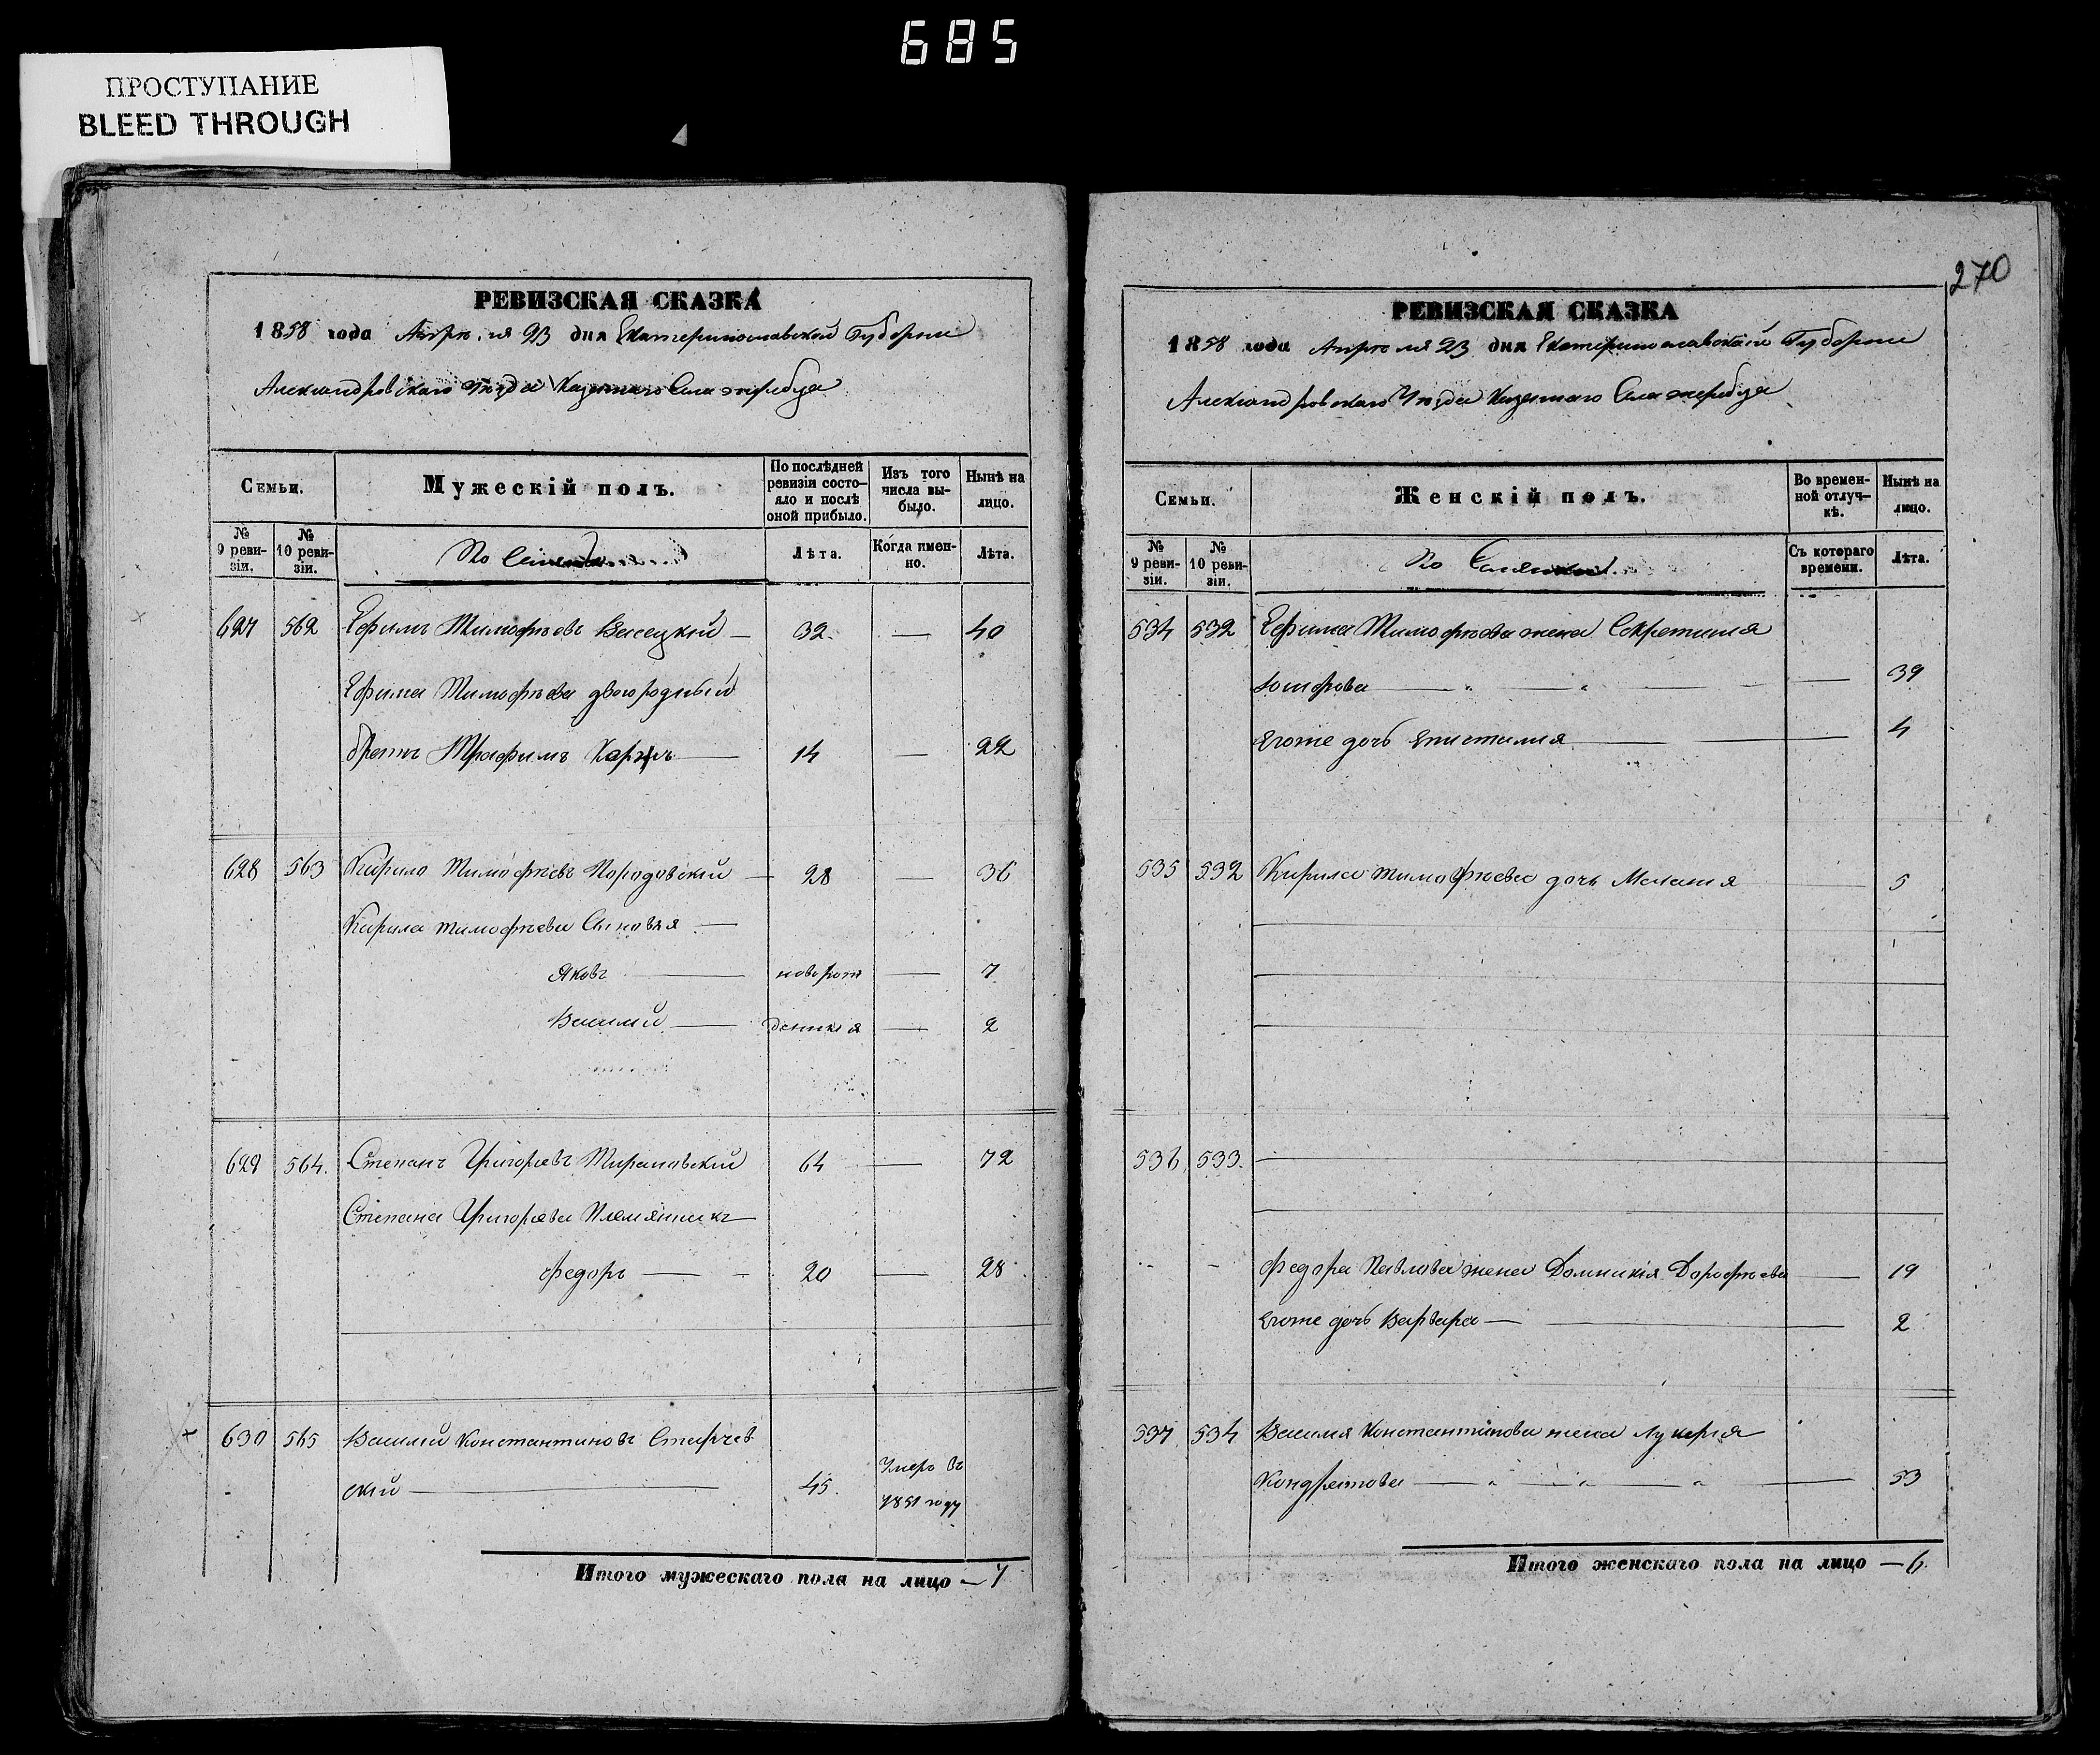 685
ПРОСТУПАНИЕ
BLEED THROUGH
РЕВИЗСКАЯ СКАЗКА
1858 года Апрѣля 23 дня Екатеринославской Губерніи
Александровскаго Уѣзда Казеннаго Села Жеребца
Семьи.
Мужескій полъ.
По послѣдней ревизіи состояло и послѣ оной прибыло.
Изъ того числа выбыло.
Нынѣ на лицо.
№ 9 ревизіи.
№ 10 ревизіи.
По
Лѣта.
Когда именно.
Лѣта.
627 562 Ефимъ Тимофѣевъ Висецкій — 32 — 40
Ефима Тимофѣева двоюродный
братъ Трофимъ — 14 — 22
628 563 Кирило Тимофѣевъ — 28 — 36
Кирила Тимофѣева Сыновья —
Яковъ — новорож — 7
Василий — деникія — 2
629 564. Степанъ Григорьевъ 64 — 72
Степана Григорьева Племянникъ
Федоръ — 20 — 28
630 565 Василий Константиновъ
ский — 45. Умеръ въ 1851 году
Итого мужескаго пола на лицо — 7
270
РЕВИЗСКАЯ СКАЗКА
1858 года Апрѣля 23 дня Екатеринославской Губерніи
Александровскаго Уѣзда Казеннаго Села Жеребца
Семьи.
Женскій полъ.
Во временной отлучкѣ.
Нынѣ на лицо.
№ 9 ревизіи.
№ 10 ревизіи.
По
Съ котораго времени.
Лѣта.
534 532 Ефима Тимофѣева жена
— 39
Егоже дочь — 4
535 532 Кирила Тимофѣева дочь Меланія — 5
536 533.
Федора Павлова жена Домникія Дорофѣева — 19
Егоже дочь Варвара — 2
537 534 Василия Константинова жена Лукерія
Кондратова — 53
Итого женскаго пола на лицо — 6.